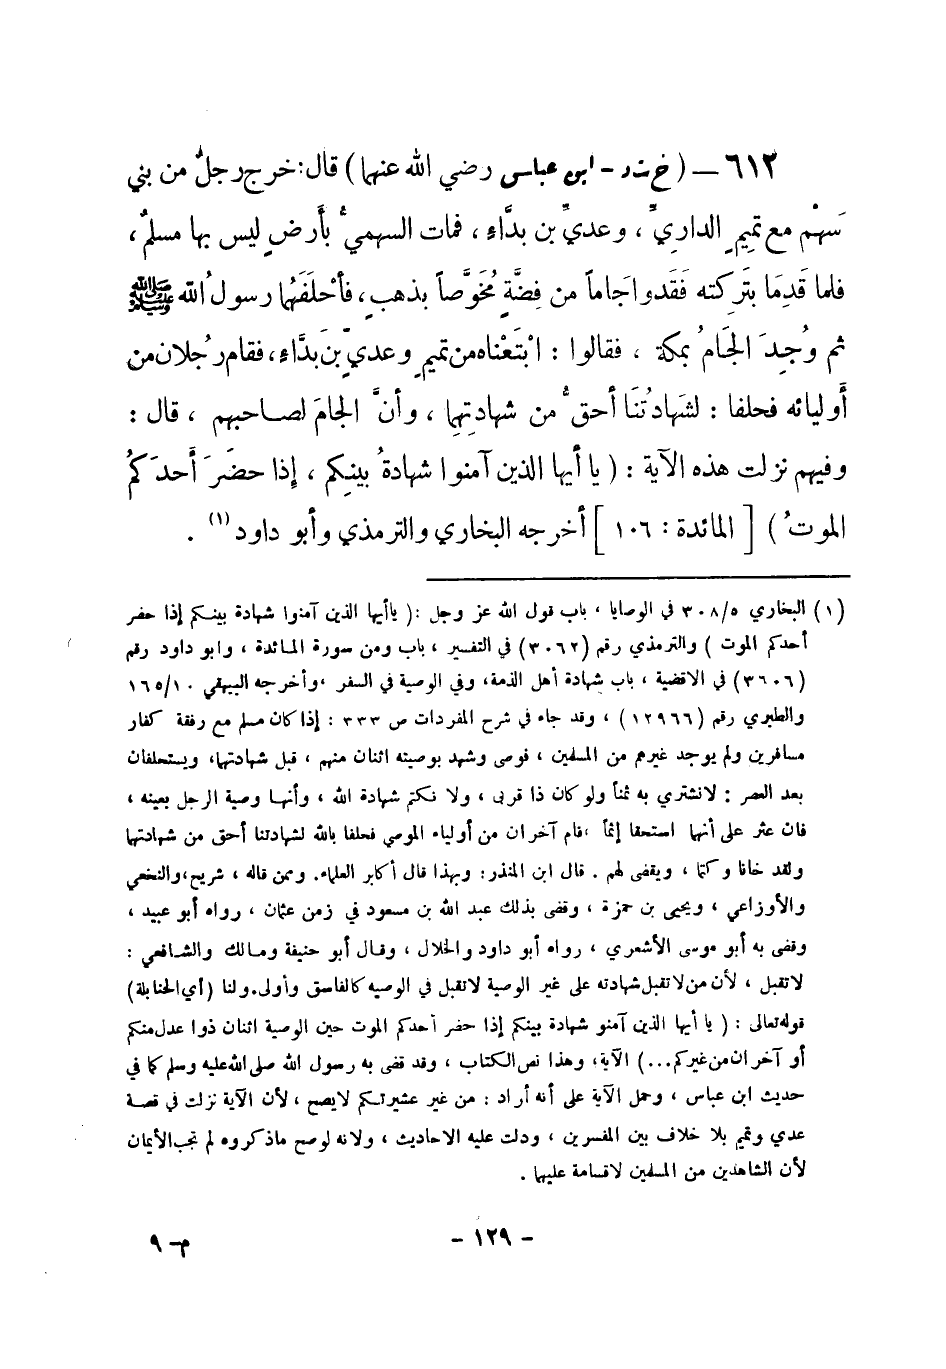 ٦١٢ — ( خ ت د - ابن عباس رضي الله عنهما ) قال : خرج رجلٌ من بني
سَهْم مع تميمٍ الداريِّ ، وعديِّ بن بدَّاء ، فمات السهميُّ بأرضٍ ليس بها مسلمٌ ،
فلما قَدِمَا بتَرِكته فَقَدوا جَاماً من فِضَّةٍ مُخَوَّصاً بذهبٍ ، فأحْلَفَهُما رسولُ الله ﷺ
ثم وُجِدَ الجَامُ بمكة ، فقالوا : ابْتَعْناه من تميمٍ وعديِّ بنِ بَدَّاء ، فقام رَجُلان من
أوليائه فحلفا : لشَهادتُنَا أحقُّ من شهادتِهما ، وأنَّ الجامَ لصاحبهم ، قال :
وفيهم نزلت هذه الآية : ( يا أيها الذين آمنوا شهادةُ بينِكم ، إذا حضَرَ أَحدَكمُ
الموتُ ) [ المائدة : ١٠٦ ] أخرجه البخاري والترمذي وأبو داود (١) .
(١) البخاري ٣٠٨/٥ في الوصايا ، باب قول الله عز وجل : ( ياأيها الذين آمنوا شهادة بينكم إذا حضر
أحدكم الموت ) والترمذي رقم (٣٠٦٢) في التفسير ، باب ومن سورة المائدة ، وابو داود رقم
(٣٦٠٦) في الاقضية ، باب شهادة أهل الذمة ، وفي الوصية في السفر ، وأخرجه البيهقي ١٦٥/١٠
والطبري رقم (١٢٩٦٦) ، وقد جاء في شرح المفردات ص ٣٣٣ : إذا كان مسلم مع رفقة كفار
مسافرين ولم يوجد غيرهم من المسلمين ، فوصى وشهد بوصيته اثنان منهم ، قبل شهادتهما ، ويستحلفان
بعد العصر : لانشتري به ثمناً ولو كان ذا قربى ، ولا نكتم شهادة الله ، وأنها وصية الرجل بعينه ،
فان عثر على أنهما استحقا إثماً ، قام آخران من أولياء الموصي فحلفا بالله لشهادتنا أحق من شهادتهما
ولقد خانا وكتما ، ويقضى لهم . قال ابن المنذر : وبهذا قال أكابر العلماء . وممن قاله ، شريح ، والنخعي
والأوزاعي ، ويحيى بن حمزة ، وقضى بذلك عبد الله بن مسعود في زمن عثمان ، رواه أبو عبيد ،
وقضى به أبو موسى الأشعري ، رواه أبو داود والخلال ، وقال أبو حنيفة ومالك والشافعي :
لاتقبل ، لأن من لاتقبل شهادته على غير الوصية لاتقبل في الوصيه كالفاسق وأولى . ولنا (أي الحنابلة)
قوله تعالى : ( يا أيها الذين آمنو شهادة بينكم إذا حضر أحدكم الموت حين الوصية اثنان ذوا عدل منكم
أو آخران من غيركم ... ) الآية ، وهذا نص الكتاب ، وقد قضى به رسول الله صلى الله عليه وسلم كما في
حديث ابن عباس ، وحمل الآية على أنه أراد : من غير عشيرتكم لايصح ، لأن الآية نزلت في قصة
عدي وتميم بلا خلاف بين المفسرين ، ودلت عليه الاحاديث ، ولانه لوصح ماذكروه لم تجب الأيمان
لأن الشاهدين من المسلمين لاقسامة عليهما .
- ١٢٩ -
م - ٩